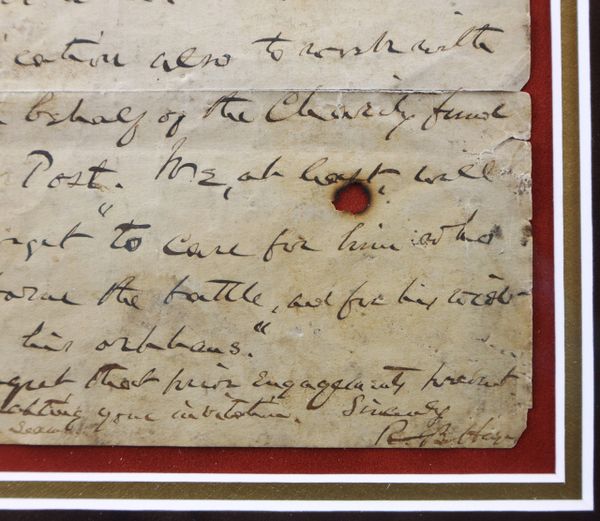 cation also to work with
behalf of the Charity fund
Post. We, at least, will
rget "to care for him who
borne the battle, and for his wido
his orphans."
gret that prior engagements prevent
your invitation. Sincerely
R. B. Hayes